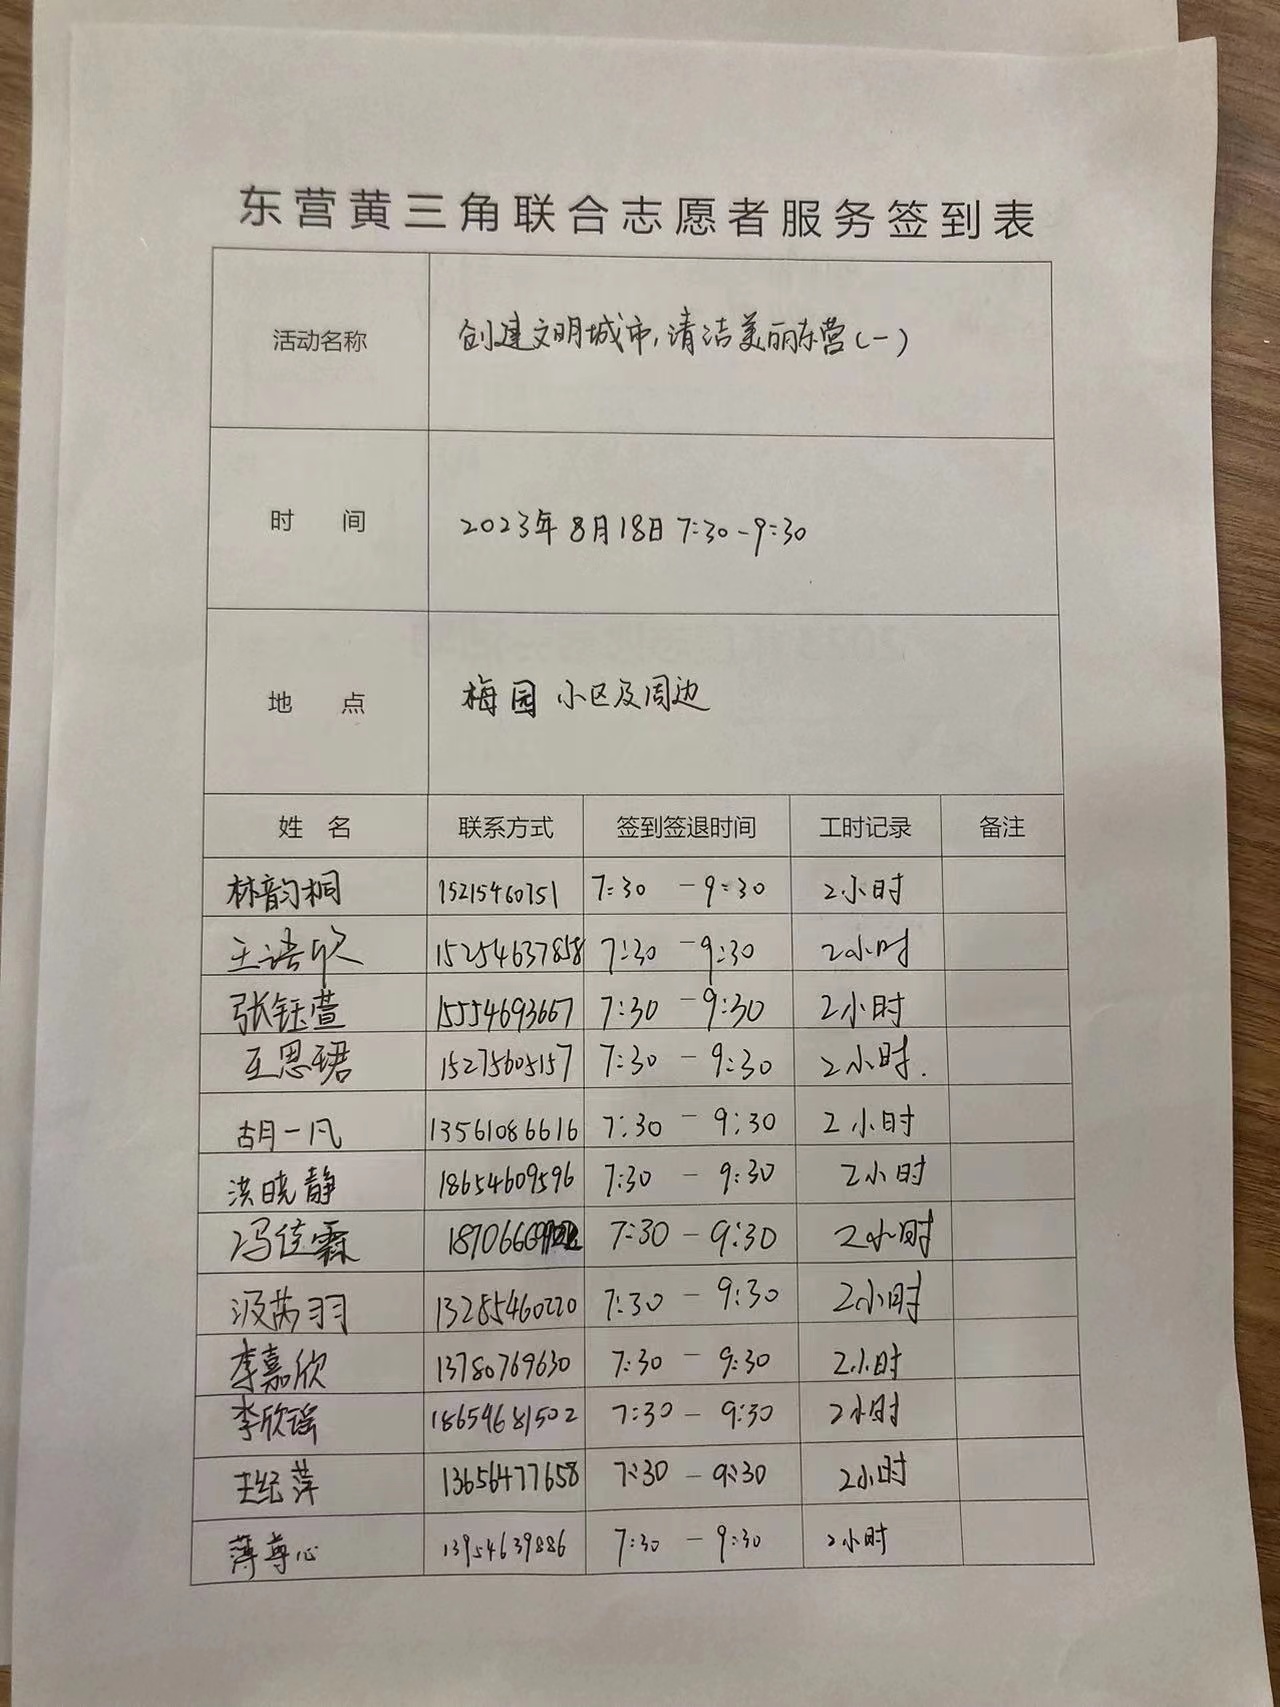 东营黄三角联合志愿者服务签到表
活动名称 创建文明城市,清洁美丽东营(一)
时 间 2023年8月18日 7:30-9:30
地 点 梅园小区及周边
姓 名 联系方式 签到签退时间 工时记录 备注
林韵桐 15215460751 7:30 - 9:30 2小时
王语欣 15254637858 7:30 - 9:30 2小时
张钰萱 15554693667 7:30 - 9:30 2小时
王思珺 15275605157 7:30 - 9:30 2小时.
胡一凡 13561086616 7:30 - 9:30 2小时
洪晓静 18654609596 7:30 - 9:30 2小时
冯佳霖 7:30 - 9:30 2小时
汲芮羽 13285460220 7:30 - 9:30 2小时
李嘉欣 13780769630 7:30 - 9:30 2小时
李欣谣 18654681502 7:30 - 9:30 2小时
王纪萍 13656477658 7:30 - 9:30 2小时
薄尊心 13954639886 7:30 - 9:30 2小时